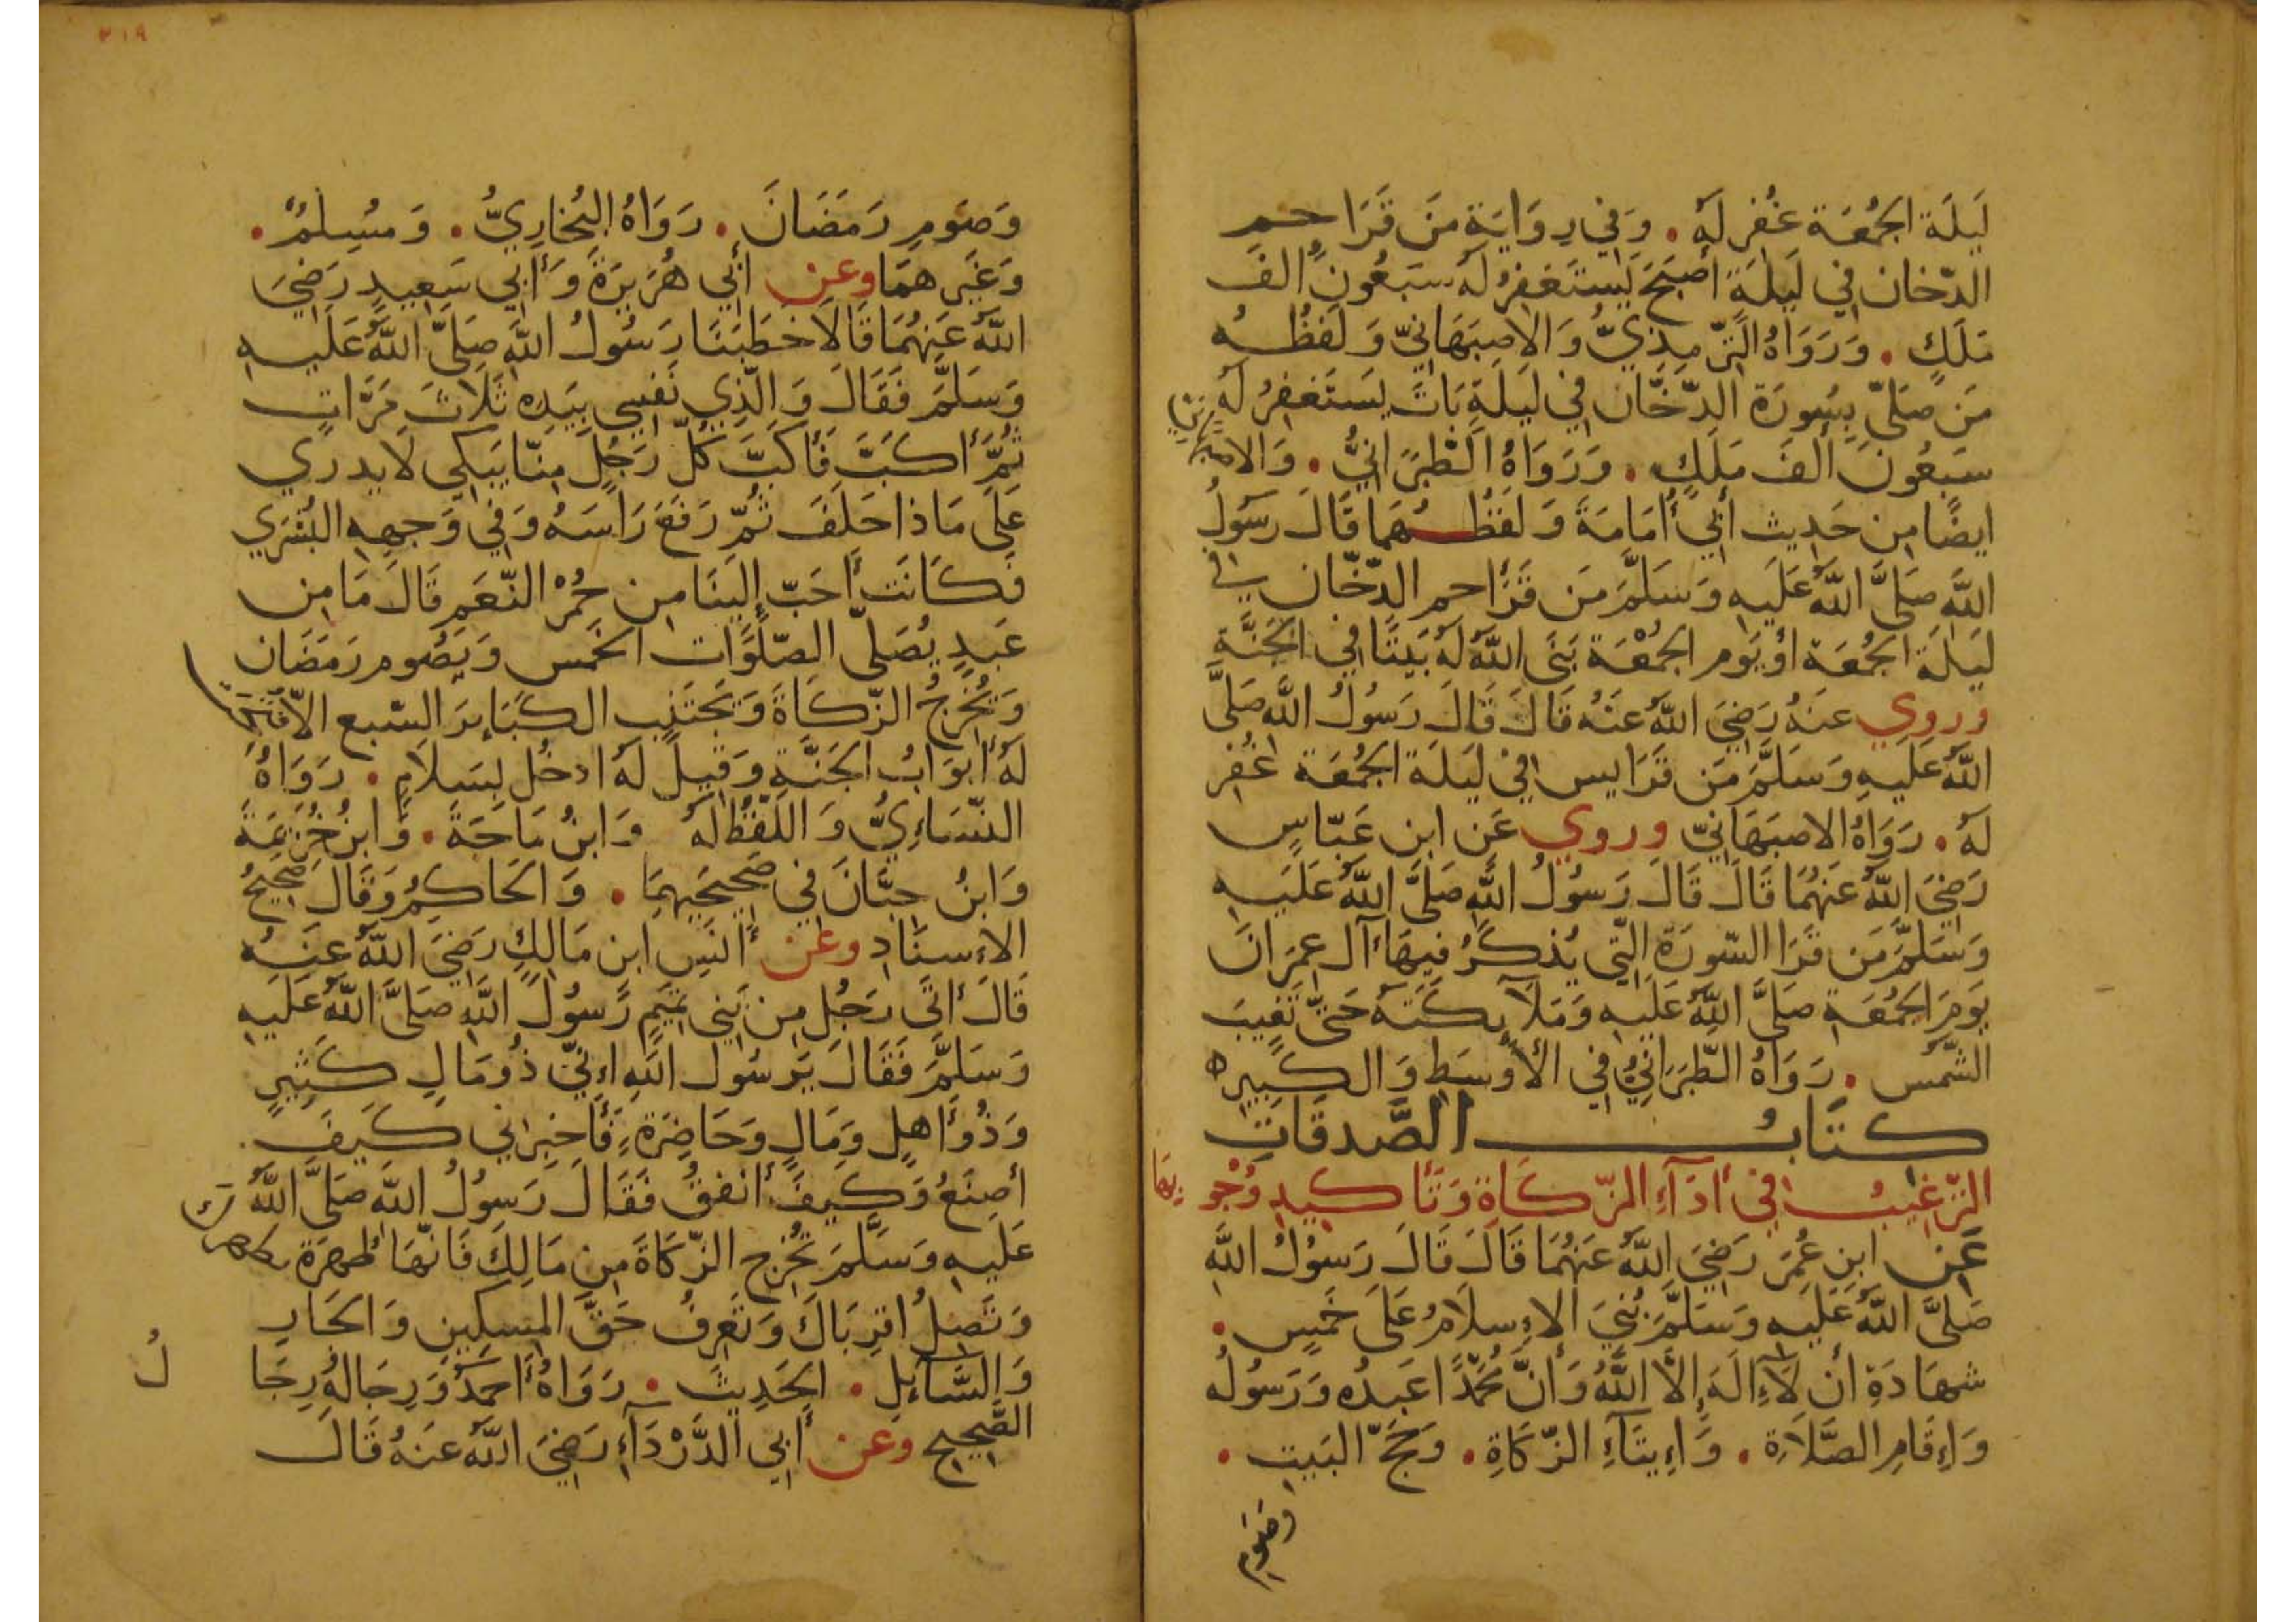 لَيلَة الجُمُعَة غُفِر لَهُ . وَفي رِوَايَةٍ مَن قَرَا حم
الدّخان في لَيلَةٍ أصبَحَ يَستَغفِرُ لَهُ سَبعُونَ ألفَ
مَلَكٍ . وَرَوَاهُ التّرمِذيُّ وَالاصبَهَانيّ وَلَفظُهُ
مَن صَلّى بِسُورَة الدّخَّان في لَيلَةٍ بَاتَ يَستَغفِرُ لَهُ
سَبعُونَ ألفَ مَلَكٍ . وَرَوَاهُ الطّبَرَانيُّ . وَالاصبهاني
ايضًا مِن حَدِيث أبي أُمَامَةَ وَلَفظُهُمَا قَالَ رَسُولُ
اللَّهِ صَلَّى اللَّهُ عَلَيهِ وَسَلَّمَ مَن قَرَأ حم الدّخّان في
لَيلَةَ الجُمُعَة أو يَوم الجُمْعَة بَنَى اللَّهُ لَهُ بَيتًا في الجَنَّة
وروي عَنهُ رَضِيَ اللَّهُ عَنهُ قَالَ قَالَ رَسُولُ اللَّهِ صَلَّى
اللَّهُ عَلَيهِ وَسَلَّمَ مَن قَرَا يس في لَيلَة الجُمُعَة غُفِر
لَهُ . رَوَاهُ الاصبَهَانيّ وروي عَن ابن عَبّاسٍ
رَضِيَ اللَّهُ عَنهُمَا قَالَ قَالَ رَسُولُ اللَّهِ صَلَّى اللَّهُ عَلَيهِ
وَسَلَّمَ مَن قَرَا السّورَة الّتي يُذكَرُ فِيهَا آل عِمرَانَ
يَومَ الجُمُعَةِ صَلَّى اللَّهُ عَلَيهِ وَمَلآئكَتَهُ حَتّى تَغِيبَ
الشّمس . رَوَاهُ الطّبَرَانيُّ في الأوسَط وَالكَبِير ه
كتَابُ الصَّدقَاتِ
التّرغيبُ في أدَآءِ الزّكَاةِ وَتَأكيدِ وُجُوبهَا
عَن ابنِ عُمَرَ رَضِيَ اللَّهُ عَنهُمَا قَالَ قَالَ رَسُولُ اللَّهِ
صَلَّى اللَّهُ عَلَيهِ وَسَلَّمَ بُنيَ الإسلَامُ عَلَى خَمسٍ .
شهَادَةِ أن لَآ إلَهَ إلّا اللَّهُ وَأنَّ مُحَمّدًا عَبدُه وَرَسُولُه
وَإقَامِ الصَّلَاةِ . وَإيتَآءِ الزّكَاةِ . وَحَجّ البَيتِ .
وَصَومِ
٢١٩
وَصَومِ رَمَضَانَ . رَوَاهُ البُخَارِيُّ . وَمُسلمٌ .
وَغَيرهمَا وعن أبي هُرَيرَةَ وَأبي سَعِيدٍ رَضِيَ
اللَّهُ عَنهُمَا قَالَا خَطَبَنَا رَسُولُ اللَّهِ صَلَّى اللَّهُ عَلَيهِ
وَسَلَّمَ فَقَالَ وَالّذِي نَفسِي بِيَدِهِ ثَلَاثَ مَرّاتٍ
ثُمَّ أكَبَّ فَأكَبَّ كُلّ رَجُلٍ مِنّا يَبكي لَا يدري
عَلَى مَاذا حَلَفَ ثُمّ رَفَعَ رَاسَهُ وَفي وَجهه البُشرَي
فَكَانَت أحَبّ إلَينَا مِن حُمْر النّعَم قَالَ مَا مِن
عَبدٍ يُصَلّى الصّلَوَات الخَمس وَيَصُوم رَمَضَان
وَيُخْرِجُ الزّكَاةَ وَيَجتَنب الكَبَائرَ السّبع الاّ فُتحَت
لَهُ أبوَابُ الجَنَّةِ وَقيلَ لَهُ ادخُل بِسَلَامٍ . رَوَاهُ
النّسَاءِيُّ وَاللّفظُ لَهُ وَابنُ مَاجَة . وَابنُ خُزَيمَةَ
وَابنُ حِبَّانَ في صَحِيحَيهِمَا . وَالحَاكِمُ وَقَالَ صَحِيحُ
الإسنَادِ وعَن أنَسِ ابنِ مَالِكٍ رَضِيَ اللَّهُ عَنهُ
قَالَ أتَى رَجُل مِن بَني تَميمٍ رَسُولَ اللَّهِ صَلَّى اللَّهُ عَلَيهِ
وَسَلَّمَ فَقَالَ يَرسُول اللَّهِ إنّي ذُو مَالٍ كَثيرٍ
وَذُو أهلٍ وَمَالٍ وَحَاضِرَةٍ فَأخبِراني كَيفَ .
أصنَعُ وَكَيفَ أنفقُ فَقَالَ رَسُولُ اللَّهِ صَلَّى اللَّهُ
عَلَيهِ وَسَلَّمَ تُخْرِج الزّكَاةَ مِن مَالِكَ فَانّهَا طُهرَة تطهرك
وَتَصِلُ اقرِبَاكَ وَتَعرِفُ حَقّ المِسكِين وَالجَار
وَالسَّائلِ . الحَدِيثَ . رَوَاهُ أحمَدُ وَرِجَالهُ رِجَالُ
الصَّحِيح وعن أبي الدَّرْدَآءِ رَضِيَ اللَّهُ عَنهُ قَالَ